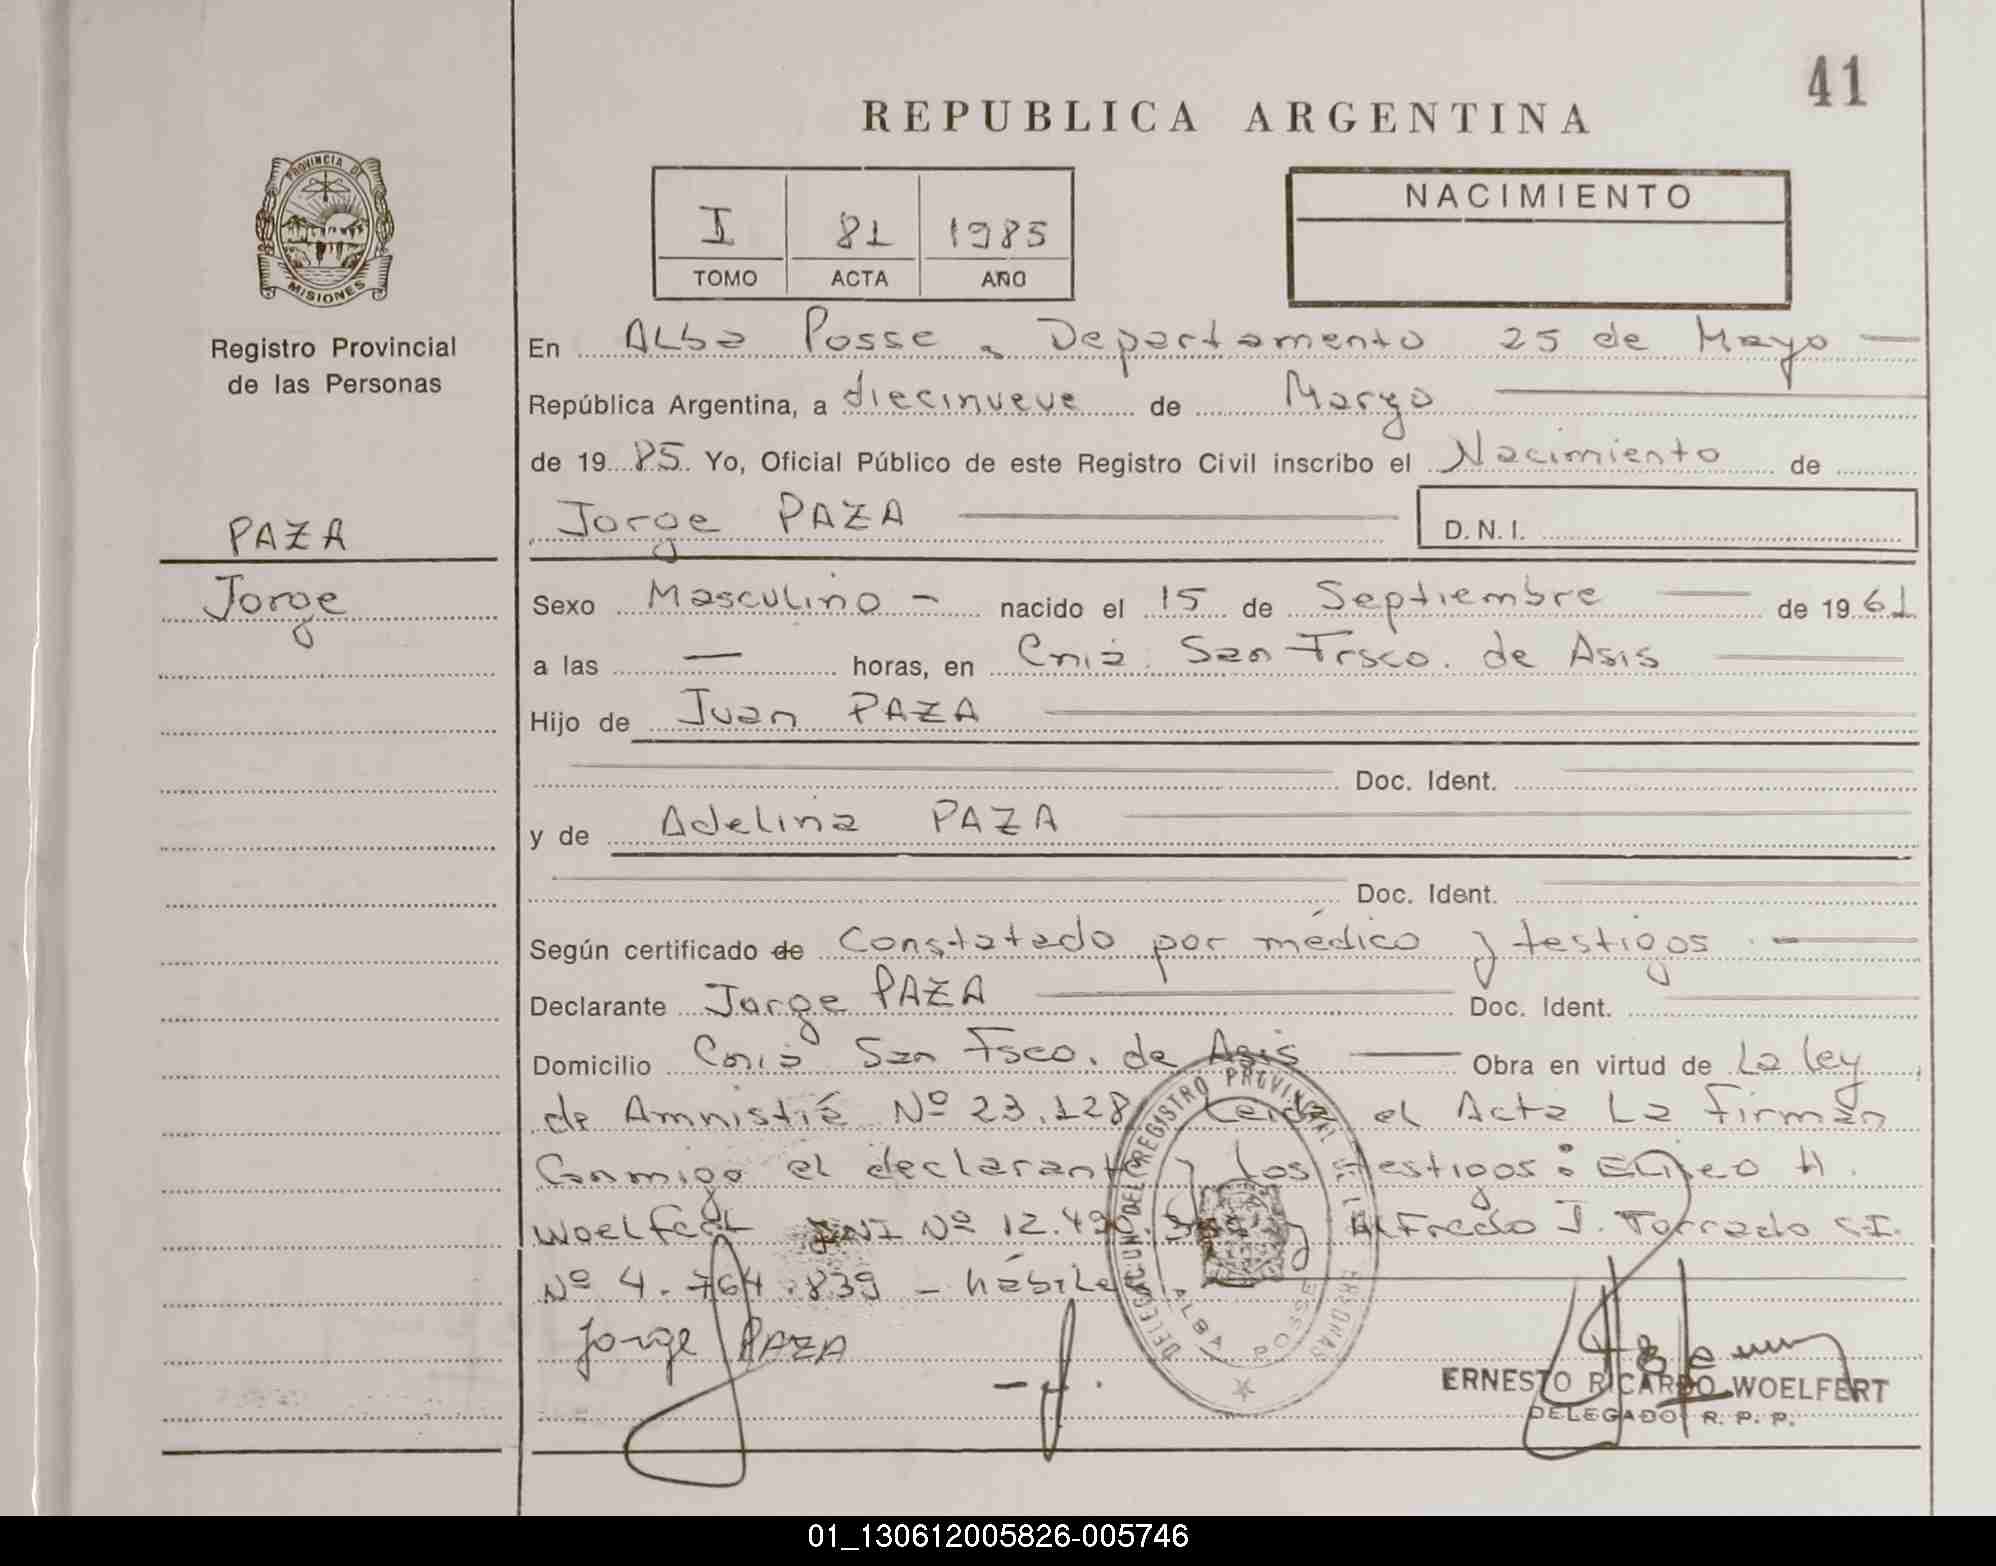 41
REPUBLICA ARGENTINA
PROVINCIA DE
MISIONES
Registro Provincial
de las Personas
I 81 1985
TOMO ACTA AÑO
NACIMIENTO
En Alba Posse, Departamento 25 de Mayo
República Argentina, a diecinueve de Marzo
de 1985 Yo, Oficial Público de este Registro Civil inscribo el Nacimiento de
Jorge PAZA D.N.I.
PAZA
Jorge
Sexo Masculino - nacido el 15 de Septiembre de 1961
a las — horas, en Cniá. San Frsco. de Asis
Hijo de Juan PAZA
Doc. Ident.
y de Adelina PAZA
Doc. Ident.
Según certificado de Constatado por médico y testigos.
Declarante Jorge PAZA Doc. Ident.
Domicilio Cniá San Fsco. de Asis Obra en virtud de La Ley
de Amnistiá Nº 23.128, Leida el Acta La Firman
Conmigo el declarante y los testigos: Eliseo H.
Woelfert DNI Nº 12.490. y Alfredo J. Torrado C.I.
Nº 4.764.839 - hábiles.
Jorge PAZA
DELEGACION DEL REGISTRO PROVINCIAL DE LAS PERSONAS
ALBA POSSE
ERNESTO RICARDO WOELFERT
DELEGADO R. P. P.
01_130612005826-005746